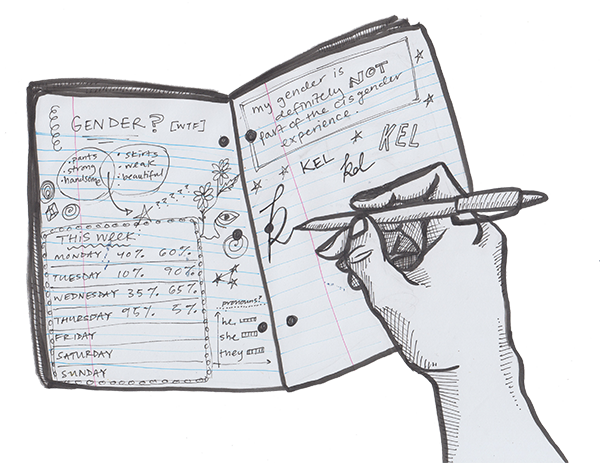 GENDER? [WTF]
• pants
• strong
• handsome
• skirts
• weak
• beautiful
?????
THIS WEEK
MONDAY 40% 60%
TUESDAY 10% 90%
WEDNESDAY 35% 65%
THURSDAY 95% 5%
FRIDAY
SATURDAY
SUNDAY
pronouns?
he
she
they
my gender is
definitely NOT
part of the cisgender
experience.
KEL
kel
KEL
k